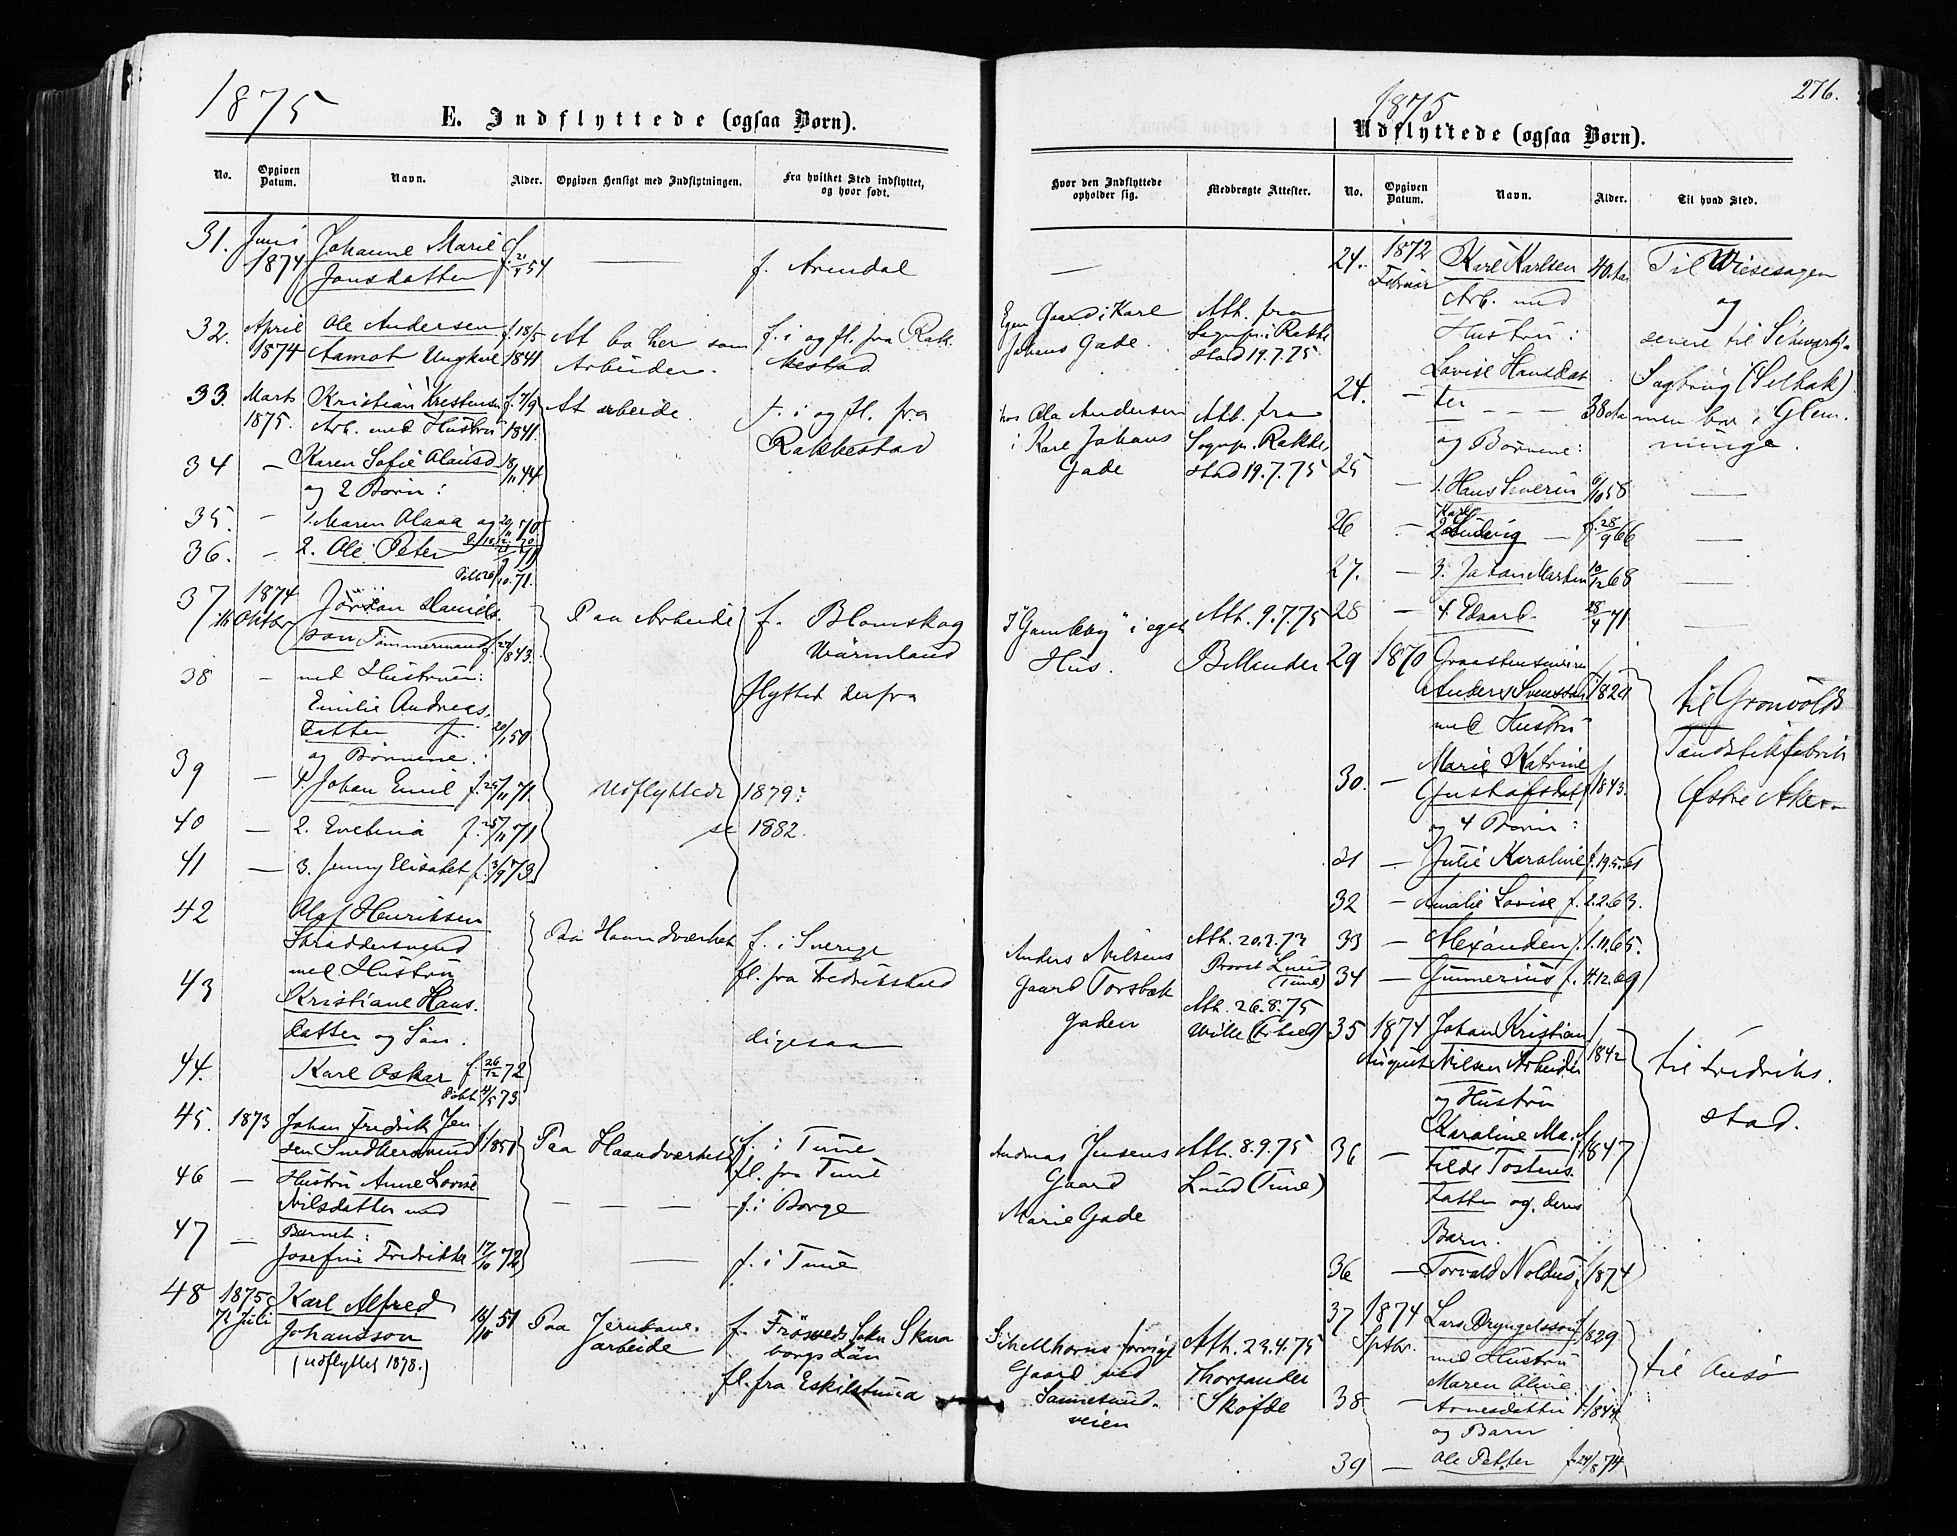 1875
E. Indflyttede (ogsaa Børn).
No.
Opgiven Datum.
Navn.
Alder.
Opgiven Hensigt med Indflytningen.
Fra hvilket Sted indflyttet, og hvor født.
31. Juni 1874 Johanne Marie Jonsdatter f. 21/4 54 — f. Arendal
32. April 1874 Ole Andersen Aamot Ungkarl f. 18/5 1841 At bo her som Arbeider. f. i og fl. fra Rakkestad
33. Marts 1875. Kristian Krestensen Arb. med Hustru f. 7/9 1841. At arbeide. f. i og fl. fra Rakkestad
34 — Karen Sofie Olausd 18/11 44
og 2 Børn:
35. — 1. Maren Olava og 29/11 70
36. — 2. Ole Peter
37 1874 Oktbr Daniels
son Tømmermand f. 24/ 843. Paa Arbeide f. Blomskog Wärmland
38 — med Hustruen:
Emilie Andreas
datter f. 20/1 50 flyttet derfra
og Børnene:
39 — 1. Johan Emil f. 25/11 71. Udflyttede 1879?
40 — 2. Evelina f. 25/11 71 se 1882.
41 — 3. Jenny Elisabet f. 3/9 73.
42 Olaf Henriksen
Skræddersvend
med Hustru Paa Haandværket f. i Sverige
43 Kristiane Hans fl. fra Fredrikstad
datter og Søn. ligesaa
44. Karl Oskar f. 26/12 72
døbt 4/5 73
45. 1873 Johan Fredrik Jen
sen Snedkersvend 1850 Paa Haandværket f. i Tune
46 — Hustru Anne Lovise fl. fra Tune
Nilsdatter med — — — f. i Borge
47 — Barnet:
Josefine Fredrikke 17/10 72 — f. i Tune
48 1875 Juli Karl Alfred
Johansson 16/10 51 Paa Jernbanearbeide f. Frösveds Sokn Skaraborgs Län
(udflyttet 1878.) fl. fra Eskilstuna
1875
276.
Udflyttede (ogsaa Børn).
Hvor den Indflyttede opholder sig.
Medbragte Attester.
No.
Opgiven Datum.
Navn.
Alder.
Til hvad Sted.
—
Egen Gaard i Karl
Johans Gade.
Att. fra
Sognepr. i Rakke
stad 19.7.75
hos Ole Andersen
i Karl Johans
Gade
Att. fra
Sognepr. Rakke
stad 19.7.75
i eget
Hus.
Att. 9.7.75
Anders Nilsens
Gaard Torsbæk
gaden
Att. 20.3.73
Provst Lund
(Tune)
Att. 26.8.75
Wille
Andreas Jensens
Gaard
Marie Gade
Att. 8.9.75
Lund (Tune)
Schellhorns forrige
Gaard ved
Sannesund
veien
Att. 23.4.75
Thorsander
Sköfde
24. 1872 Februar Karl Karlsen 40 Aar
Arb. med
Hustru:
24. — Lovise Hansdat
ter — — — 38 Aar
og Børnene:
Til Wiesesagen
og
senere til Schwartz
Sagbrug (Selbak)
men bor i Glem
minge.
25 — 1. Hans Severin 6/10 58 —
26 — 2. Karl Ludvig — f. 28/9 66 —
27. — 3. Johan Martin 10/12 68 —
28 — 4. Edvard 28/4 71 —
29 1870
Anders Svensson 1824
med Hustru
30. — Marie Katrine
Gustafsdat f. 1843.
og 4 Børn:
til Grønvolds
Tændstikfabrik
Østre Aker
31 — Julie Karoline f. 19.5.61
32 — Amalie Lovise f. 2.2.63.
33 — Alexander f. 1.11.65.
34 — Gunnerius f. 4.12.69
35 1874 August Johan Kristian
Nilsen Arbeider f. 1842
og Hustru
til Fredrik
stad.
36 — Karoline Ma
tilde Tostens
datter og deres f. 1847
Barn:
36 — Torvald Noldus f. 1874
37 1874 Sptbr. Lars Bryngelsson f. 1829
med Hustru
38 — Maren Oline
Arnesdatter f. 1844
og Barn
til Onsø
39 — Ole Petter f. 24/8 74